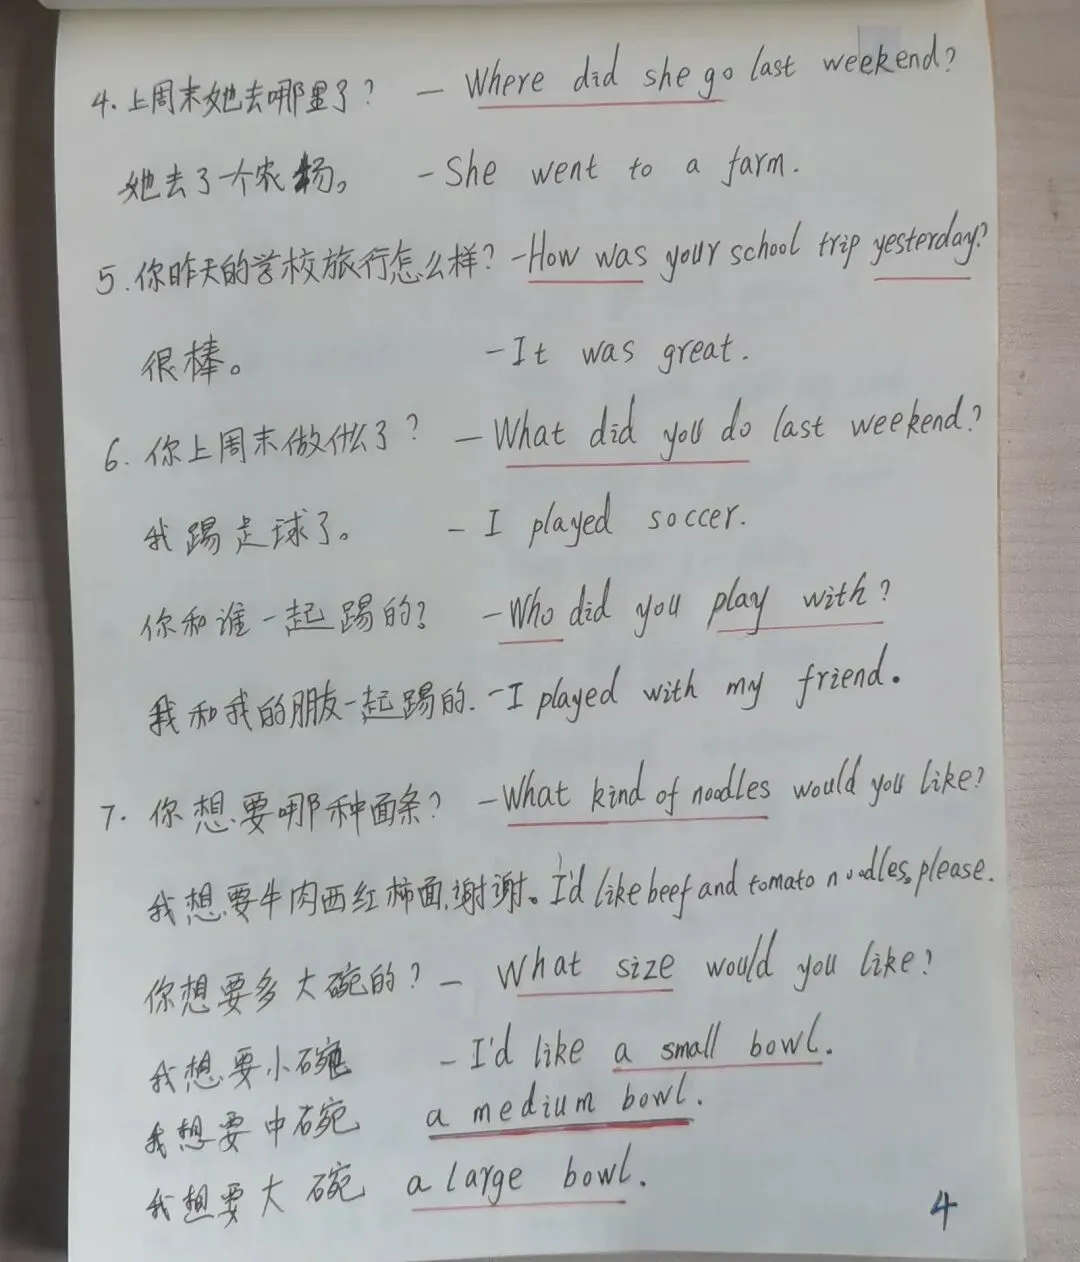 4. 上周末她去哪里了? — Where did she go last weekend?
她去了一个农场。 - She went to a farm.
5. 你昨天的学校旅行怎么样? - How was your school trip yesterday?
很棒。 - It was great.
6. 你上周末做什么了? — What did you do last weekend?
我踢足球了。 - I played soccer.
你和谁一起踢的? - Who did you play with?
我和我的朋友一起踢的. - I played with my friend.
7. 你想要哪种面条? - What kind of noodles would you like?
我想要牛肉西红柿面,谢谢。 I'd like beef and tomato noodles, please.
你想要多大碗的? - What size would you like?
我想要小碗 - I'd like a small bowl.
我想要中碗 a medium bowl.
我想要大碗 a large bowl.
4